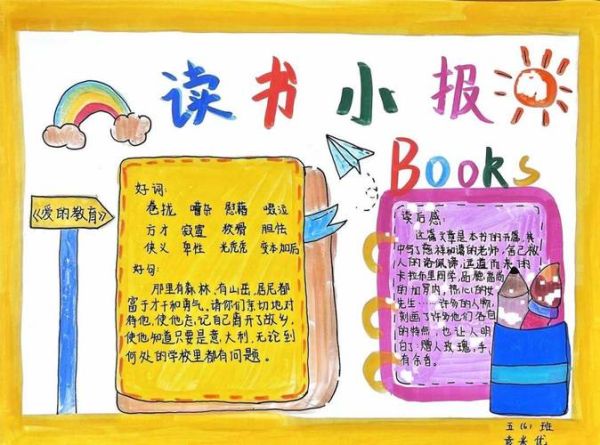 读书小报
Books
《爱的教育》
好词:
卷拢 嘈杂 慰藉 啜泣
方才 寂寞 教训 胆怯
侠义 卑性 光秃秃 变本加厉
好句:
那里有森林,有山岳,居尼都
富于才干和勇气。请你们亲切地对
待他,使他忘记自己离开了故乡,
使他知道只要是意大利,无论到
何处的学校里都有问题。
读后感:
这篇文章是本书的开篇,其
中写了慈祥和蔼的老师,舍己救
人的洛佩谛,
卡拉布里同学,品德高尚
的加罗内,热心的女
先生……许多的人物,
刻画了许多他们各自
的特点,也让人明
白了:赠人玫瑰,手
有余香。
五(6)班